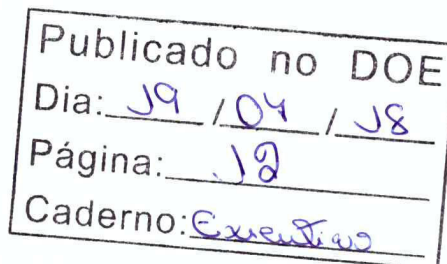 Publicado no DOE
Dia: 19 / 04 / 18
Página: 12
Caderno: Executivo